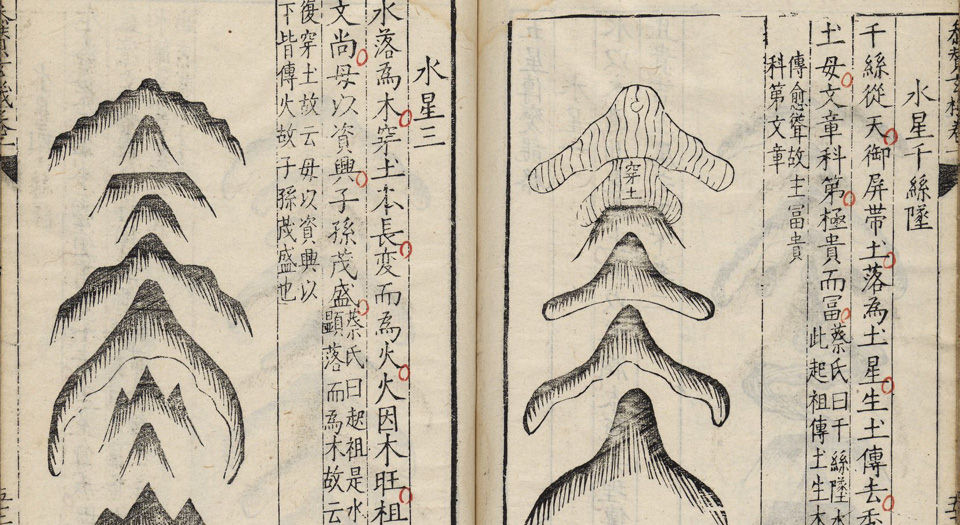 水星千絲墜
千絲從天御屏帶土落為土星生土傳去
土母文章科第極貴而冨蔡氏曰千絲墜水
此起祖傳土生木
傳愈聳故主冨貴
科第文章
穿土
水星三
水落為木穿土木長変而為火火因木旺祖
文尚母以資興子孫茂盛蔡氏曰起祖是水
顯落而為木故云
復穿土故云母以資興以
下皆傳火故子孫茂盛也